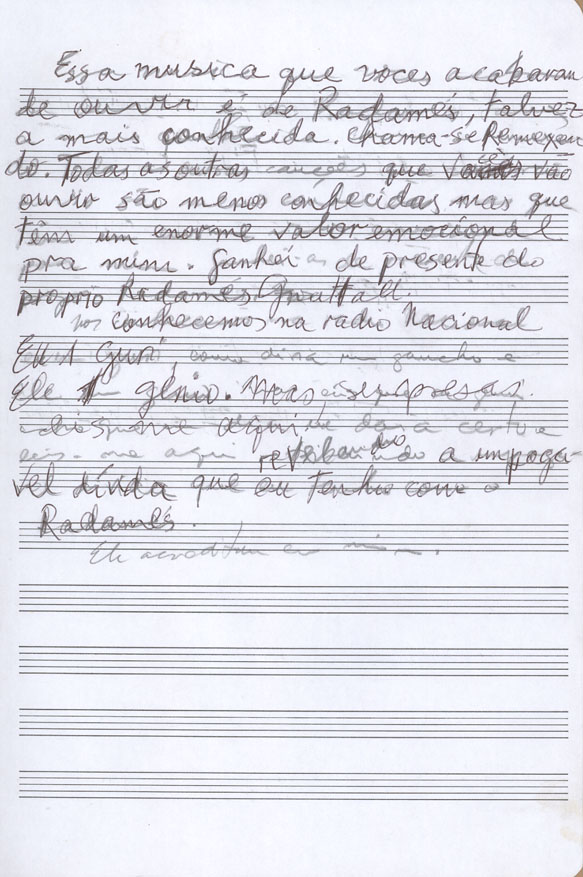 Essa musica que voces acabaran
de ouvir é de Radamés, talvez
a mais conhecida. Chama-se Remexen
do. Todas as outras canções que vão
ouvir são menos conhecidas mas que
têm um enorme valor emocional
pra mim. Ganhei as de presente do
proprio Radamés Gnattali.
nos conhecemos na radio Nacional
Eu 1 Guri, como diria um gaucho e
Ele 1 gênio. Mas
aqui
aqui a impaga-
vel divida que eu tenho com o
Radamés.
Ele acreditou em mim.